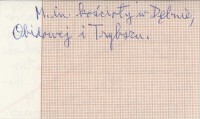 M.in. kościoły w Dębnie,
Obidowej i Trybszu.